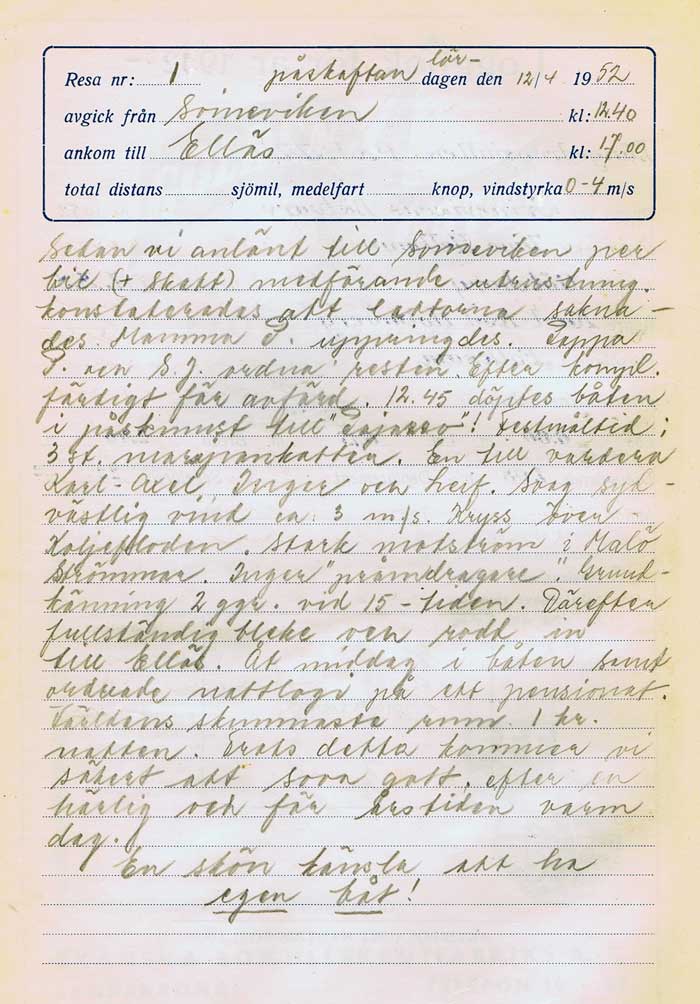 Resa nr: 1 påskaftan lör-dagen den 12/4 1952
avgick från Sömeviken kl: 12.40
ankom till Ellös kl: 17.00
total distans sjömil, medelfart knop, vindstyrka 0-4 m/s
Sedan vi anlänt till Sömeviken per
bil (+ skatt) medförande utrustning,
konstaterades att lattorna sakna-
des. Mamma P. uppringdes. Pappa
P. och S.J. ordna' resten. Efter kompl.
färdigt för avfärd. 12.45 döptes båten
i påskmust till "Pajazzo"! Festmåltid:
3 st. marsipankatten. En till vardera
Karl-Axel, Inger och Leif. Svag syd-
västlig vind ca: 3 m/s. Kryss över
Koljefloden. Stark motström i Malö
Strömmar. Inger "pråmdragare". Grund-
känning 2 ggr. vid 15-tiden. Därefter
fullständig bleke och rodd in
till Ellös. Åt middag i båten samt
ordnade nattlogi på ett pensionat.
Världens skummaste rum. 1 kr.
natten. Trots detta kommer vi
säkert att sova gott, efter en
härlig och för årstiden varm
dag.
En skön känsla att ha
egen båt!